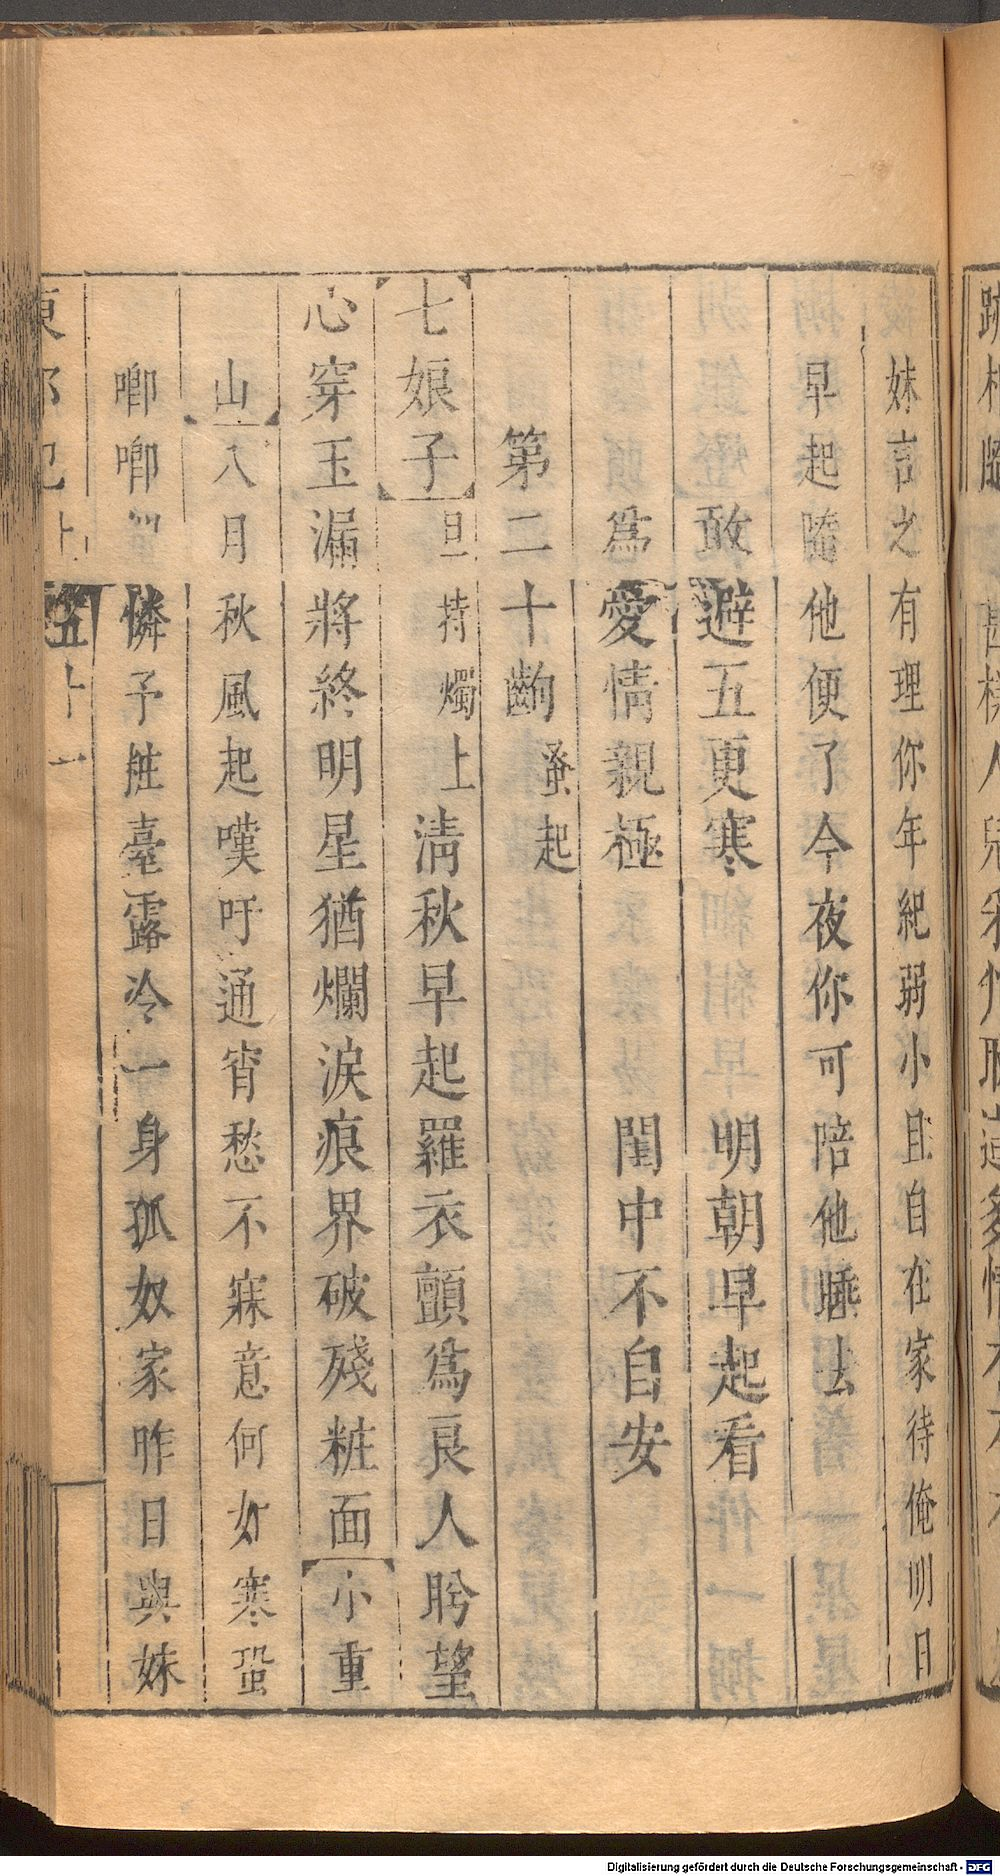 妹言之有理你年紀弱小且自在家待俺明日
早起隨他便了今夜你可陪他睡去
敢避五更寒 明朝早起看
為愛情親極 閨中不自安
第二十齣 蚤起
七娘子 旦持燭上 淸秋早起羅衣顫爲良人盻望
心穿玉漏將終明星猶爛淚痕界破殘粧面 小重
山 八月秋風起嘆吁通宵愁不寐意何如寒蛩
唧唧 憐予粧臺露冷一身孤奴家昨日與妹
東郭記上 五十一
Digitalisierung gefördert durch die Deutsche Forschungsgemeinschaft - DFG